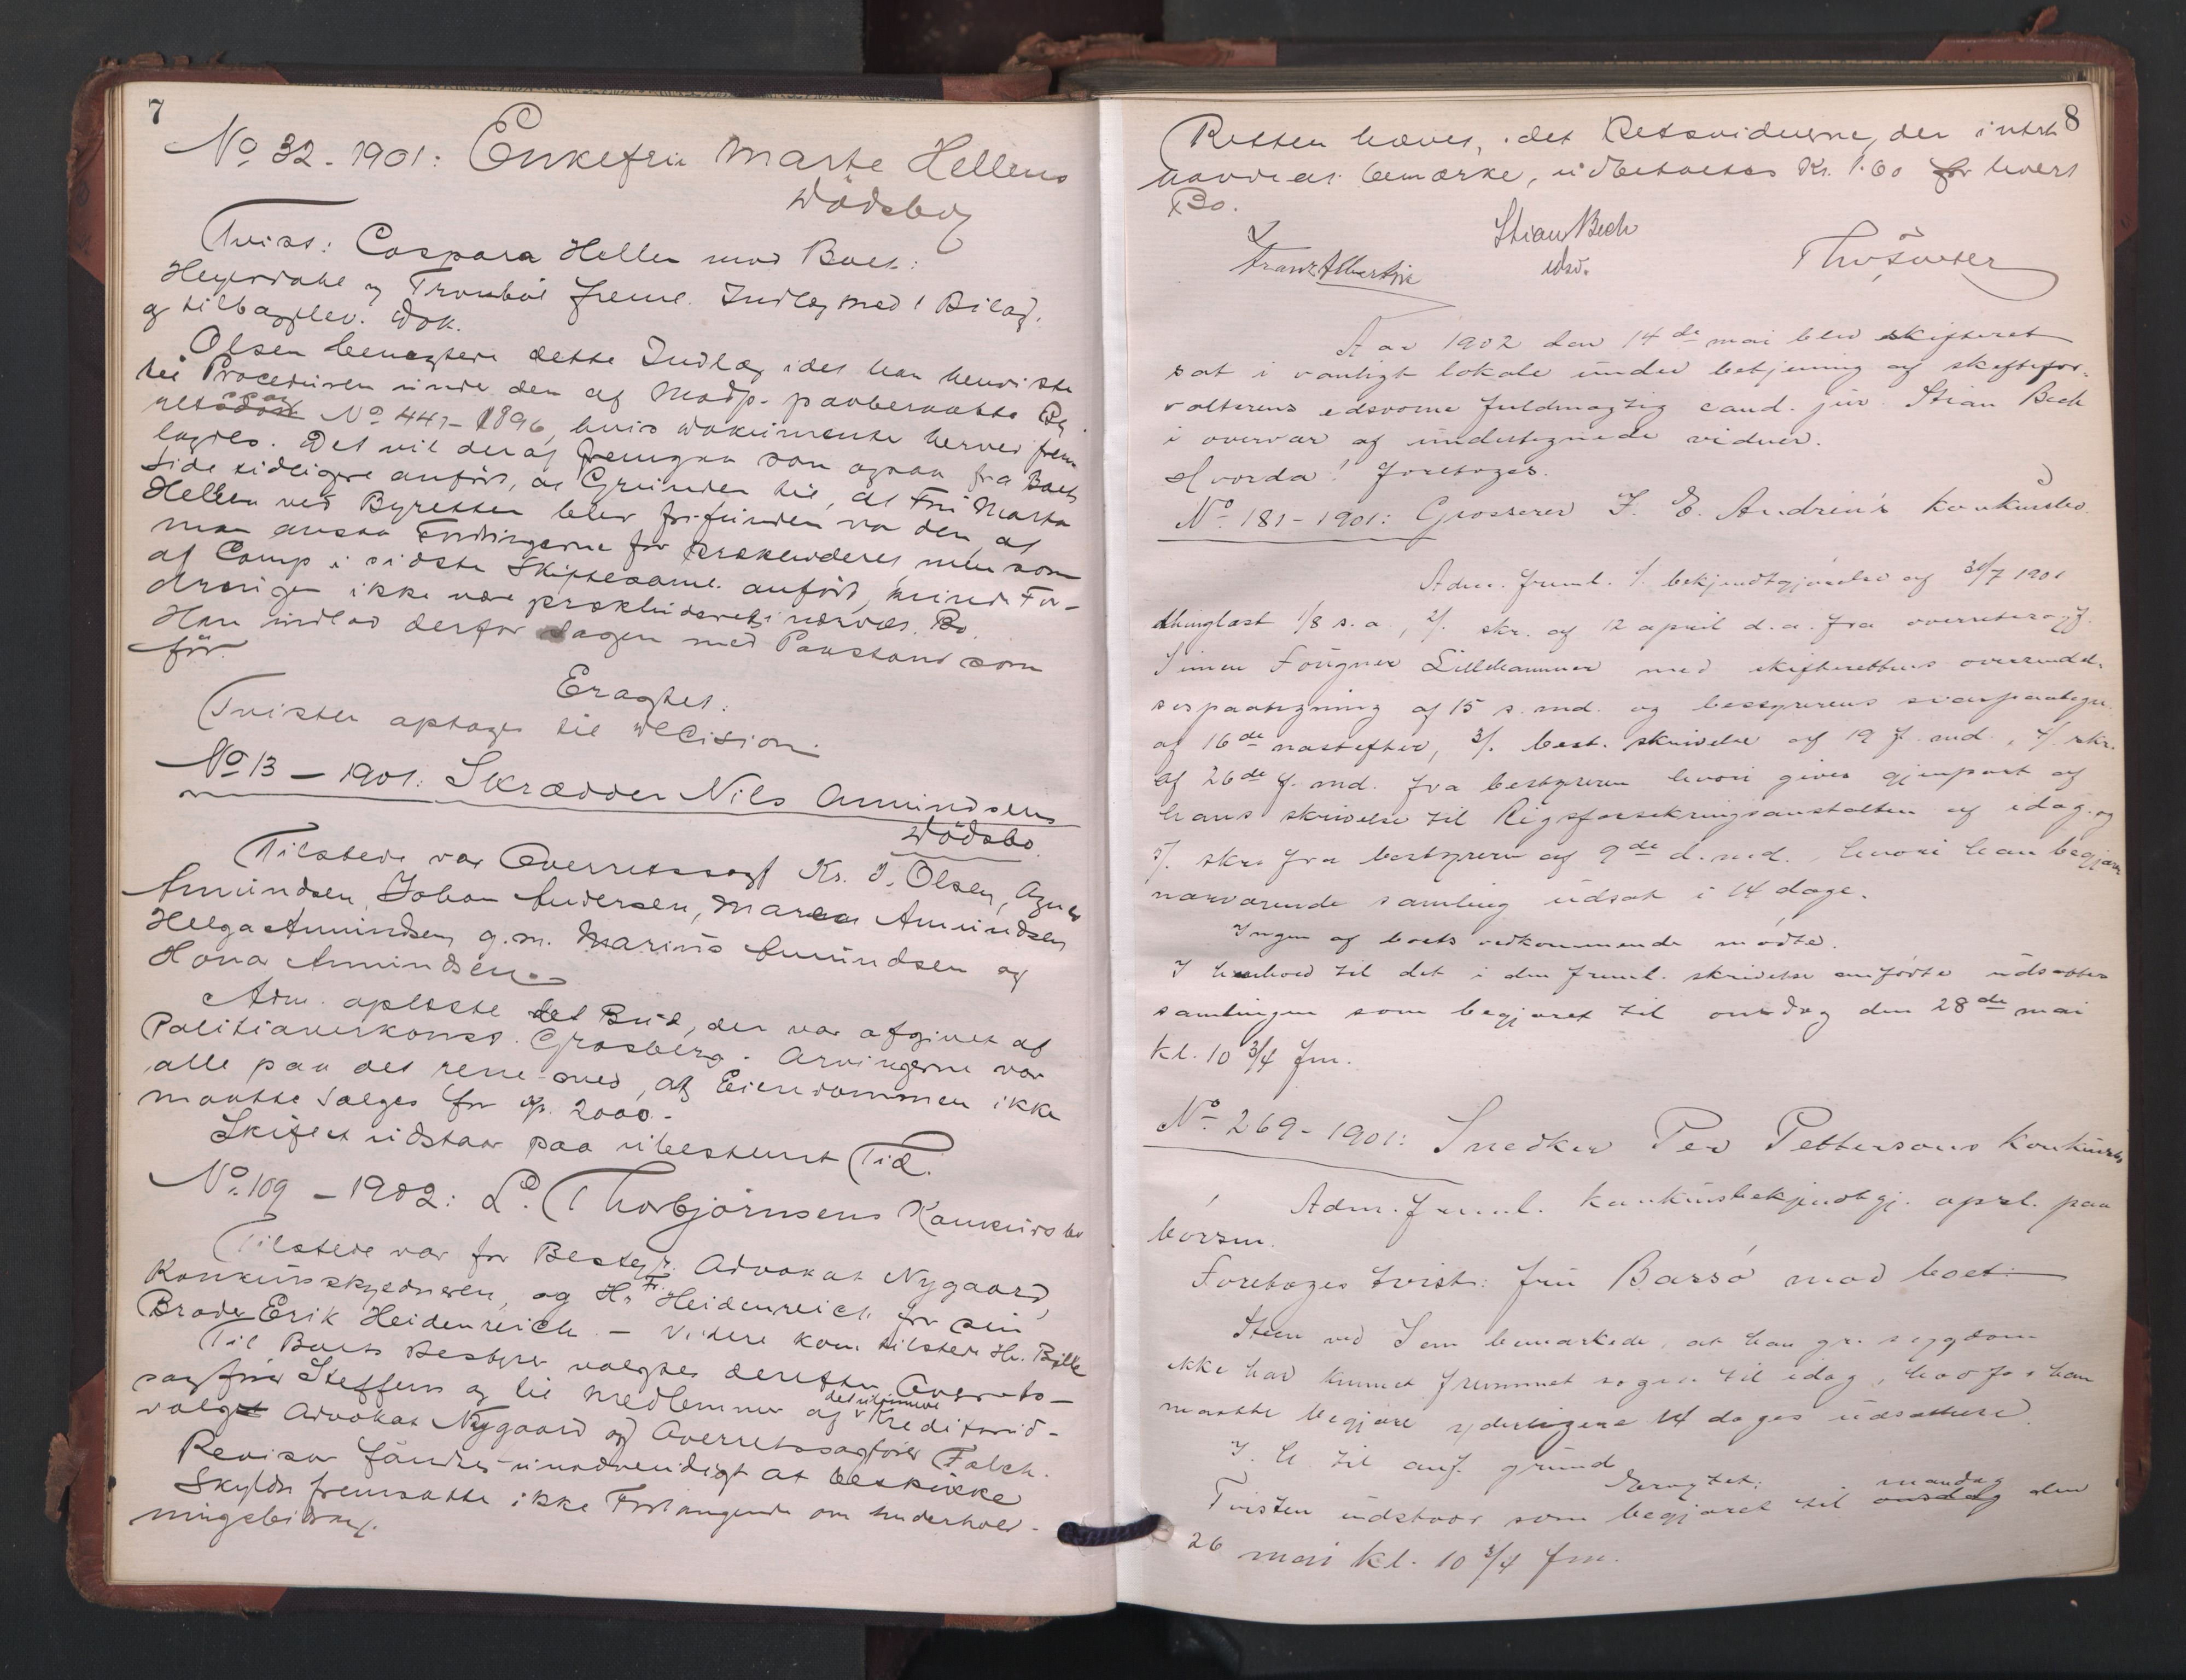 7
No 32 - 1901: Enkefru Marte Hellens
Dödsbo
Tvist: Caspara Hellen mod Boet:
Heyerdahl og Tronböl freml. Indlæg med 1 Bilag.
og tilbagelev. Dok.
Olsen benegtede dette Indlæg idet han henviste
til Proceduren under den af Modp. paaberaabte By
retssag No 441 - 1896, hvis Dokumenter herved frem
lagdes. Det vil deraf fremgaa som ogsaa fra Boets
Side tidligere anfört, at Grunden til, at Fru Marte
Hellen ved Byretten blev frifunden var den, at
man ansaa Fordringerne for prækluderet, men som
af Comp i sidste Skiftesaml. anfört, kunde For-
dringen ikke være prækluderet i nærvær. Bo.
Han indlod derfor Sagen med Paastand som
för.
Eragtet.
Tvisten optages til Decision.
No 13 - 1901: Skrædder Nils Amundsens
Dödsbo.
Tilstede var Overretssagf Kr. J. Olsen, Agnes
Amundsen, Johan Andersen, Maren Amundsen
Helga Amundsen g.m. Marius Amundsen og
Hona Amundsen.
Adm. oplæste det Bud, der var afgivet af
Politioverkonst. Grasberg. Arvingerne var
alle paa det rene med, at Eiendommen ikke
maatte sælges for 2000.-
Skiftet udstaar paa ubestemt Tid.
No. 109 - 1902: L. Thorbjörnsens Konkursbo
Tilstede var for Bestyr. Advokat Nygaard,
Konkursskyldneren, og Hr. Fr. Heidenreich for sin
Broder Erik Heidenreich. - Videre kom tilstede Hr. Bille
Til Boets Bestyrer valgtes derefter Overrets-
sagförer Steffens og til Medlemmer af det udtömmende Kreditorud-
valget Advokat Nygaard og Overretssagförer Falch.
Revisor fandtes unödvendigt at beskikke
Skyldn fremsatte ikke Forlangende om underhold-
ningsbidrag.
8
Retten hævet, idet Retsvidnerne, der intet
havde at bemærke, udbetaltes Kr. 1.60 for hvert
Bo.
Stian Bech
Franz Albertsen
const.
Aar 1902 den 14de mai blev skifteret
sat i vanligt lokale under betjening af skiftefor-
valterens edsvorne fuldmægtig cand. jur. Stian Bech
i overvær af undertegnede vidner.
Hvorda! foretoges.
No. 181 - 1901: Grosserer J. E. Andrén's konkursbo.
Adm. freml. 1/. bekjendtgjørelse af 30/7 1901
thinglæst 1/8 s.a., 2/. skr. af 12 april d.a. fra overretssagf.
Simen Fougner Lillehammer med skifterettens oversendel-
sespaategning af 15 s. md. og bestyrerens svarpaategn.
af 16de næstefter, 3/. best. skrivelse af 19 f. md., 4/. skr.
af 26de f. md. fra bestyreren hvori gives gjenpart af
hans skrivelse til Rigsforsikringsanstalten af idag. og
5/. skr. fra bestyreren af 9de d. md., hvori han begjær
nærværende samling udsat i 14 dage.
Ingen af boets vedkommende mødte.
I henhold til det i den freml. skrivelse anførte udsattes
samlingen som begjæret til onsdag den 28de mai
kl. 10 3/4 fm.
No. 269 - 1901: Snedker Per Pettersons konkursbo
Adm. freml. konkursbekjendtgj. opsl. paa
børsen.
Foretoges tvist: fru Barsø mod boet:
Steen ved Sem bemærkede, at han gr. sygdom
ikke har kunnet fremmet sagen til idag, hvorfor han
maatte begjære yderligere 14 dages udsættelse.
I. h til anf. grund
Eragtet:
Tvisten udstaar som begjæret til onsdag mandag den
26 mai kl. 10 3/4 fm.